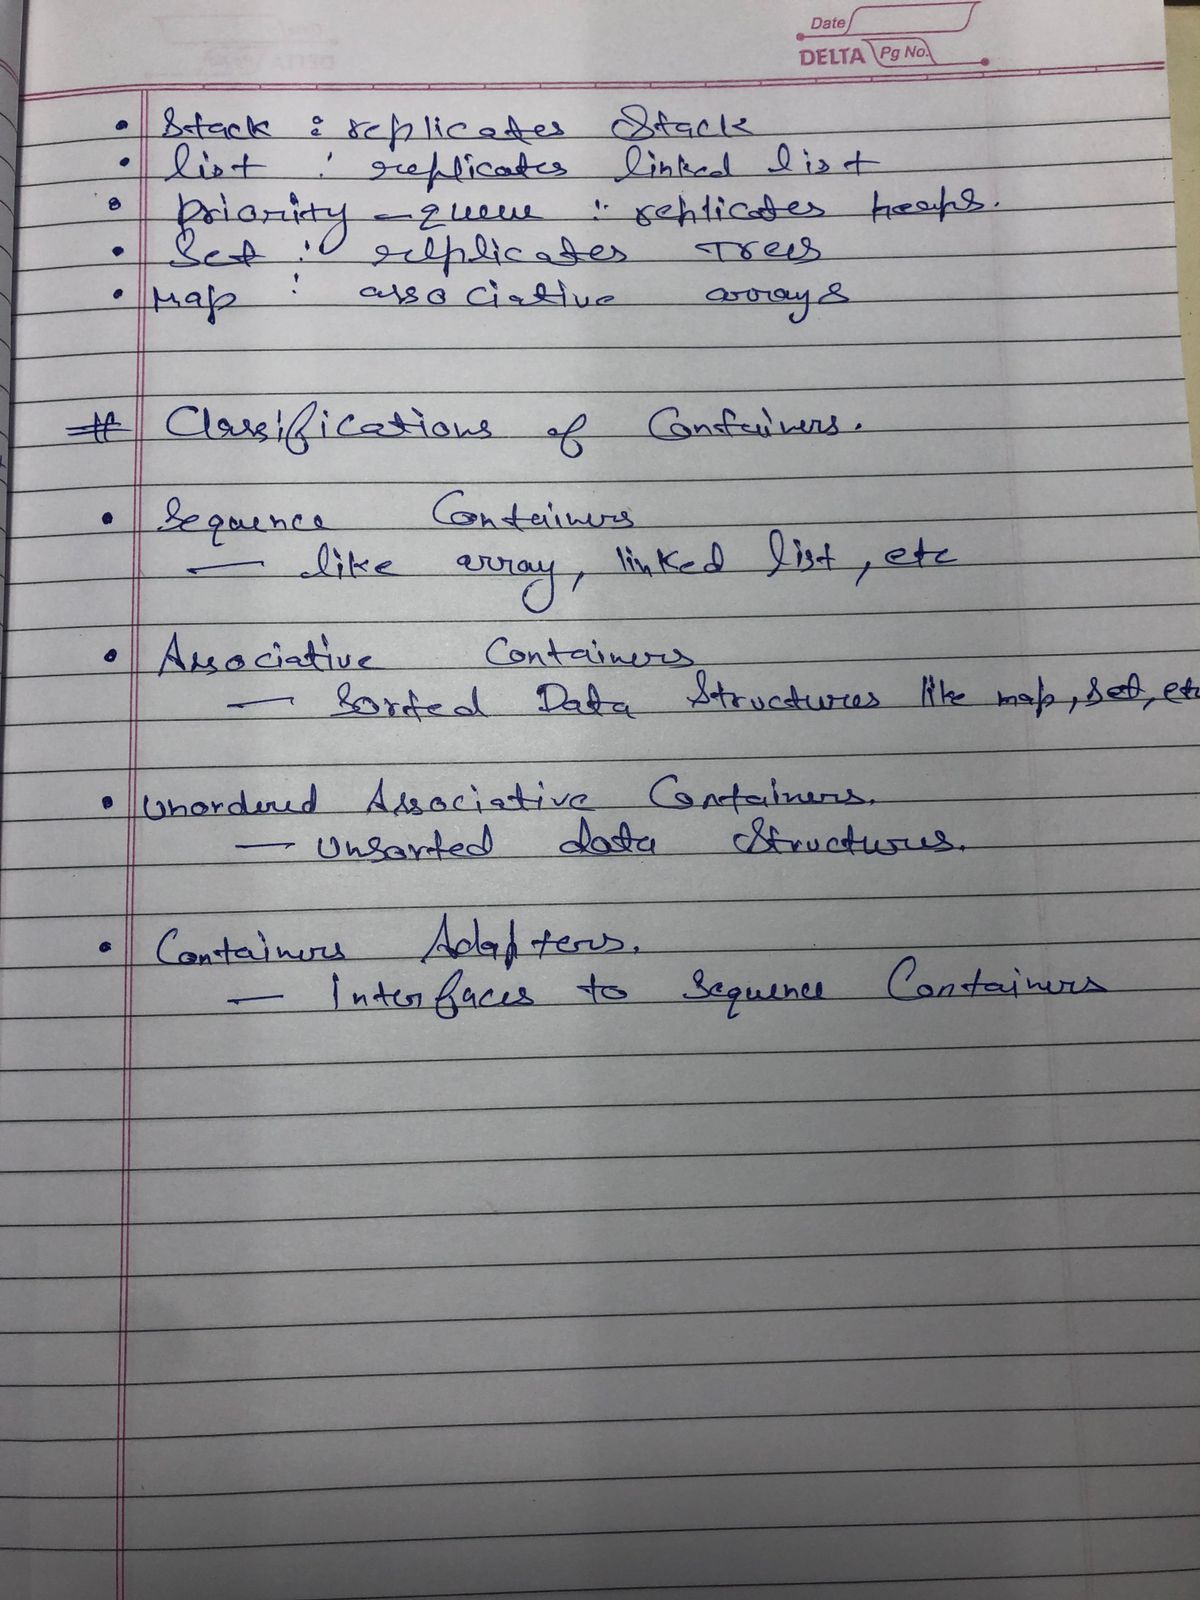 Date
DELTA Pg No.
• Stack : replicates Stack
• list : replicates linked list
• priority - queue : replicates heaps.
• Set : relplicates Trees
• Map : associative arrays
# Classifications of Containers.
• Sequence Containers
— like array, linked list, etc
• Associative Containers
— Sorted Data Structures like map, set, etc
• Unordered Associative Containers.
— Unsorted data Structures.
• Containers Adapters.
— Interfaces to Sequence Containers